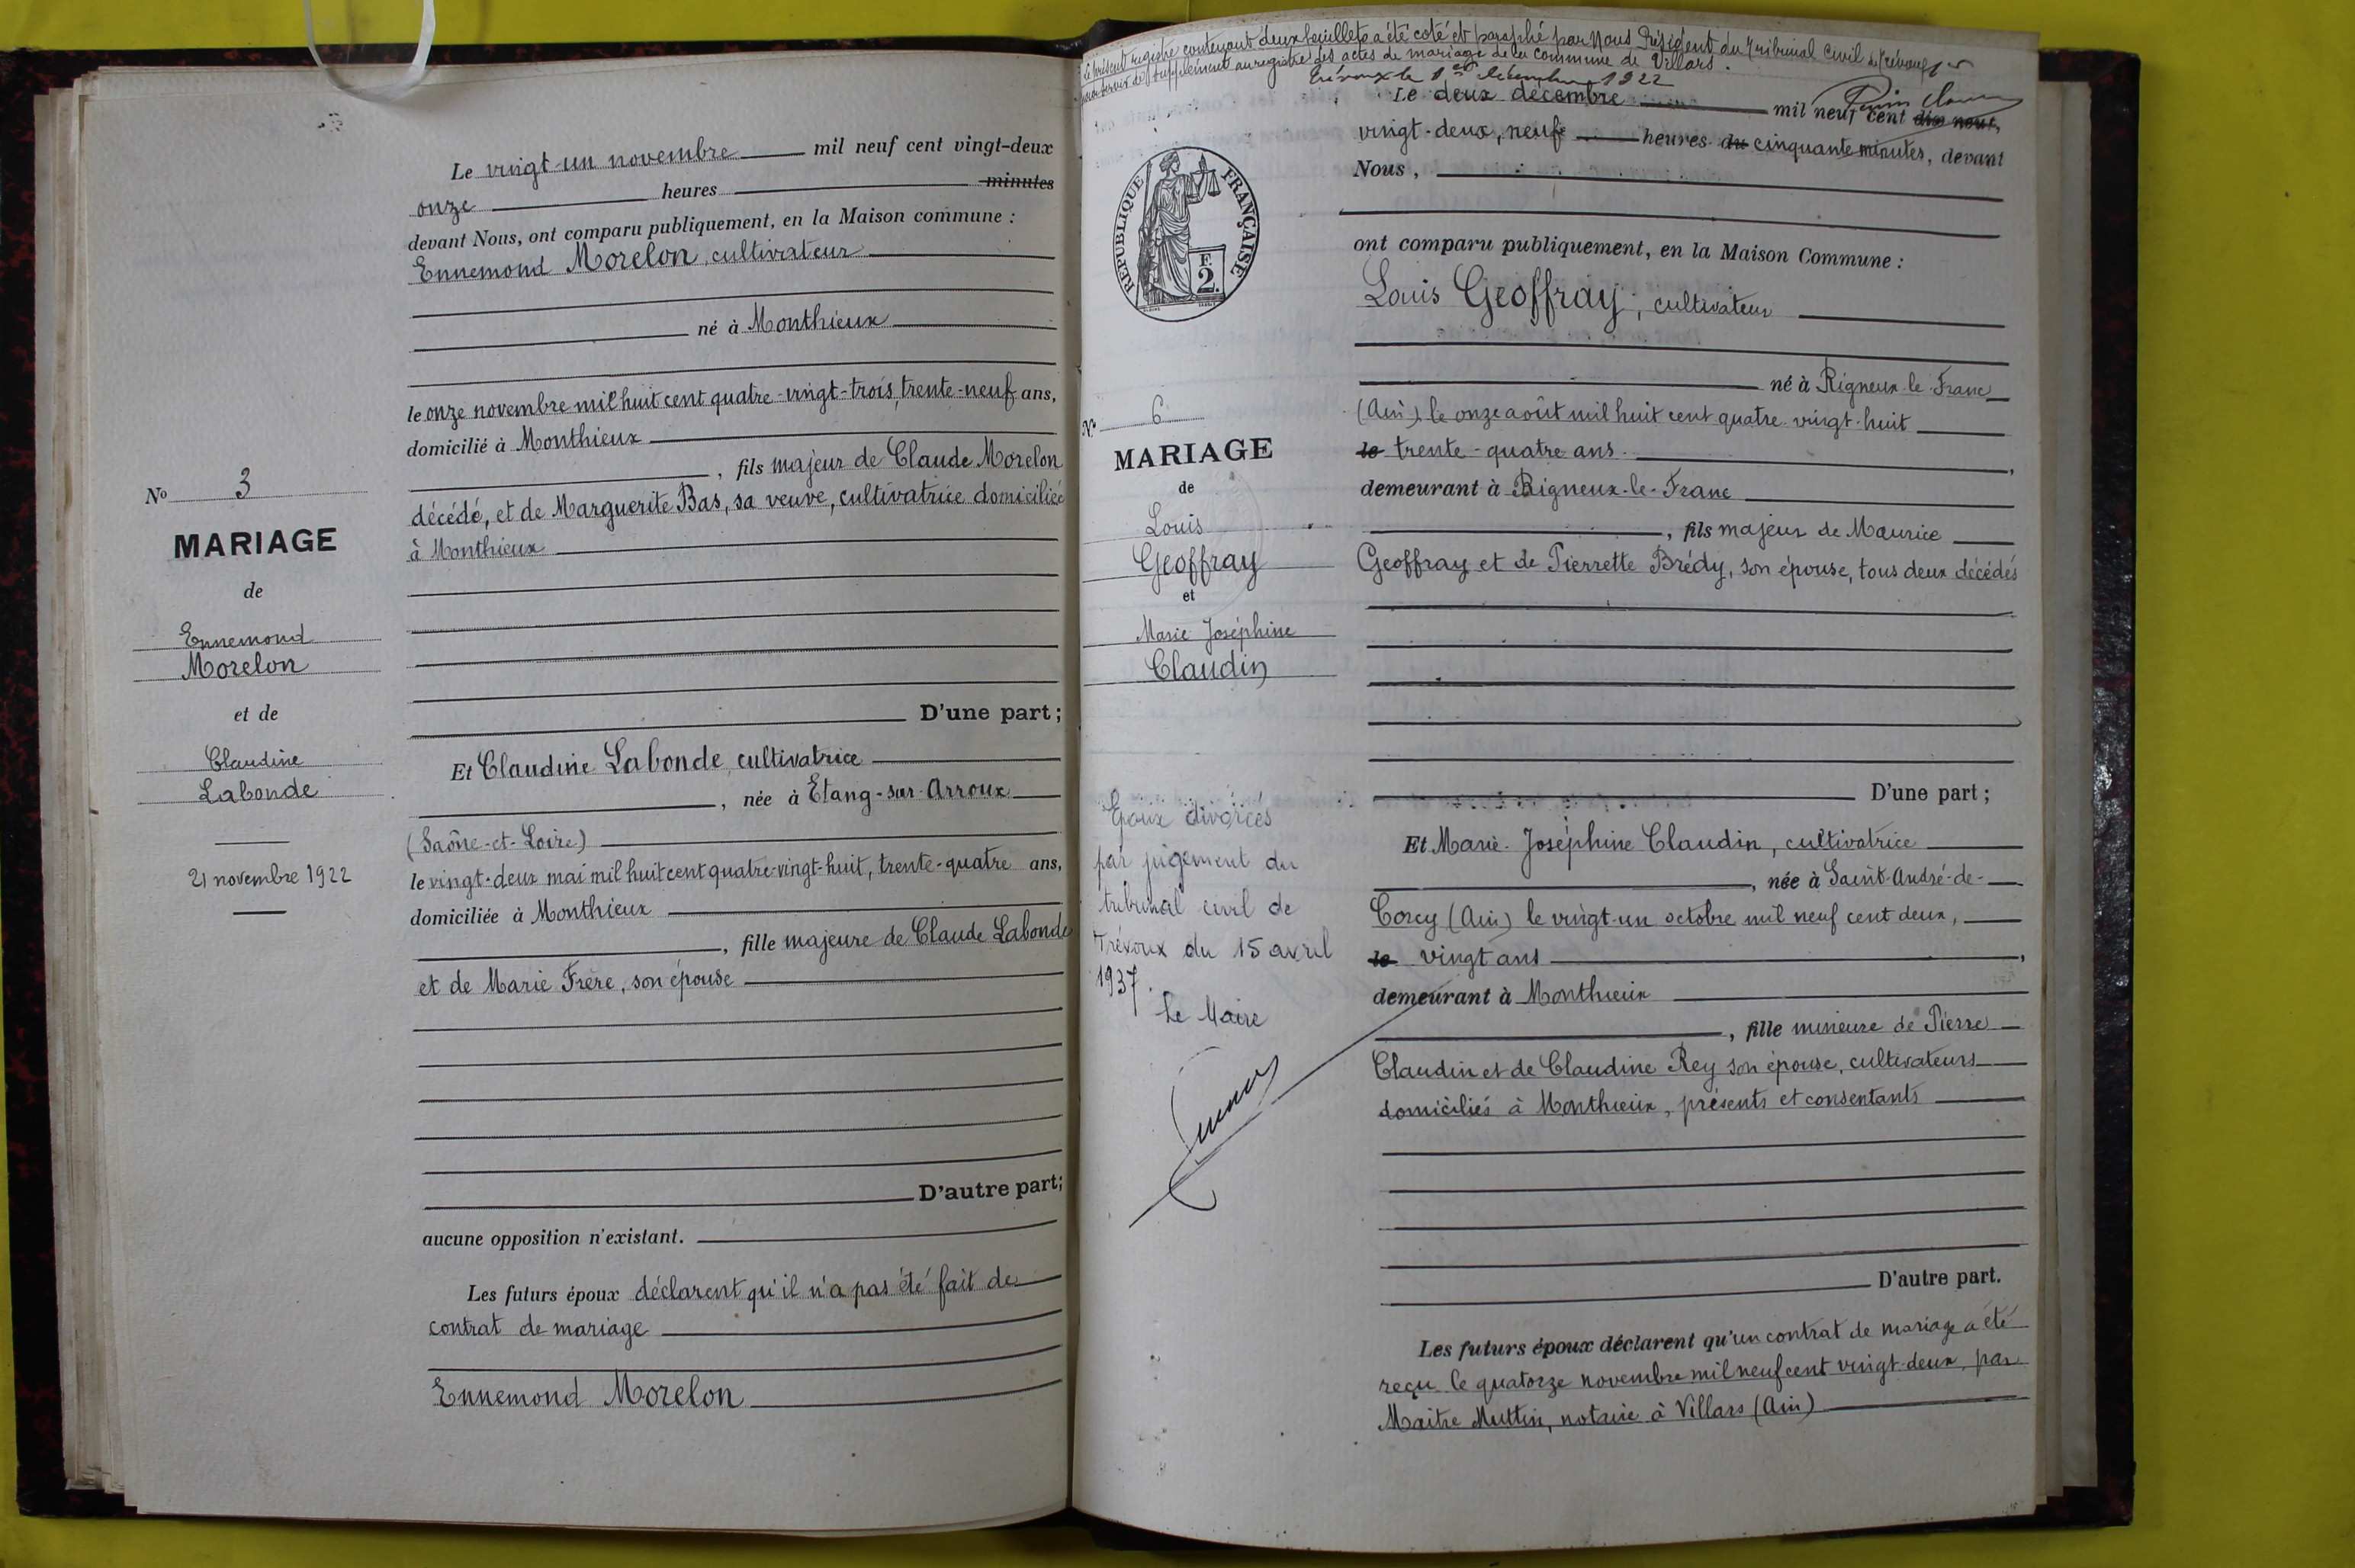 Le vingt-un novembre mil neuf cent vingt-deux
onze heures minutes
devant Nous, ont comparu publiquement, en la Maison commune :
Ennemond Morelon, cultivateur
né à Monthieux
le onze novembre mil huit cent quatre-vingt-trois, trente-neuf ans,
domicilié à Monthieux
, fils majeur de Claude Morelon
décédé, et de Marguerite Bas, sa veuve, cultivatrice domiciliée
à Monthieux
D'une part ;
Et Claudine Labonde, cultivatrice
, née à Etang-sur-Arroux
(Saône-et-Loire)
le vingt-deux mai mil huit cent quatre-vingt-huit, trente-quatre ans,
domiciliée à Monthieux
, fille majeure de Claude Labonde
et de Marie Frère, son épouse
D'autre part;
aucune opposition n'existant.
Les futurs époux déclarent qu'il n'a pas été fait de
contrat de mariage
Ennemond Morelon
No 3
MARIAGE
de
Ennemond
Morelon
et de
Claudine
Labonde
21 novembre 1922
Le présent registre contenant deux feuillets a été coté et paraphé par Nous Président du Tribunal Civil de Trévoux
supplément au registre des actes de mariage de la commune de Villars.
Trévoux le 1er décembre 1922
Le deux décembre mil neuf cent dix neuf,
vingt-deux, neuf heures du cinquante minutes, devant
Nous,
ont comparu publiquement, en la Maison Commune :
Louis Geoffray, cultivateur
né à Rigneux-le-Franc
(Ain) le onze août mil huit cent quatre-vingt-huit
le trente-quatre ans
demeurant à Rigneux-le-Franc
, fils majeur de Maurice
Geoffray et de Pierrette Brédy, son épouse, tous deux décédés
D'une part ;
Et Marie-Joséphine Claudin, cultivatrice
, née à Saint-André-de-
Corcy (Ain) le vingt-un octobre mil neuf cent deux,
le vingt ans
demeurant à Monthieux
, fille mineure de Pierre
Claudin et de Claudine Rey son épouse, cultivateurs
domiciliés à Monthieux, présents et consentants
D'autre part.
Les futurs époux déclarent qu'un contrat de mariage a été
reçu le quatorze novembre mil neuf cent vingt-deux, par
Maitre Muttin, notaire à Villars (Ain)
REPUBLIQUE FRANÇAISE
F.
2.
No 6
MARIAGE
de
Louis
Geoffray
et
Marie Joséphine
Claudin
Epoux divorcés
par jugement du
tribunal civil de
Trévoux du 15 avril
1937.
Le Maire